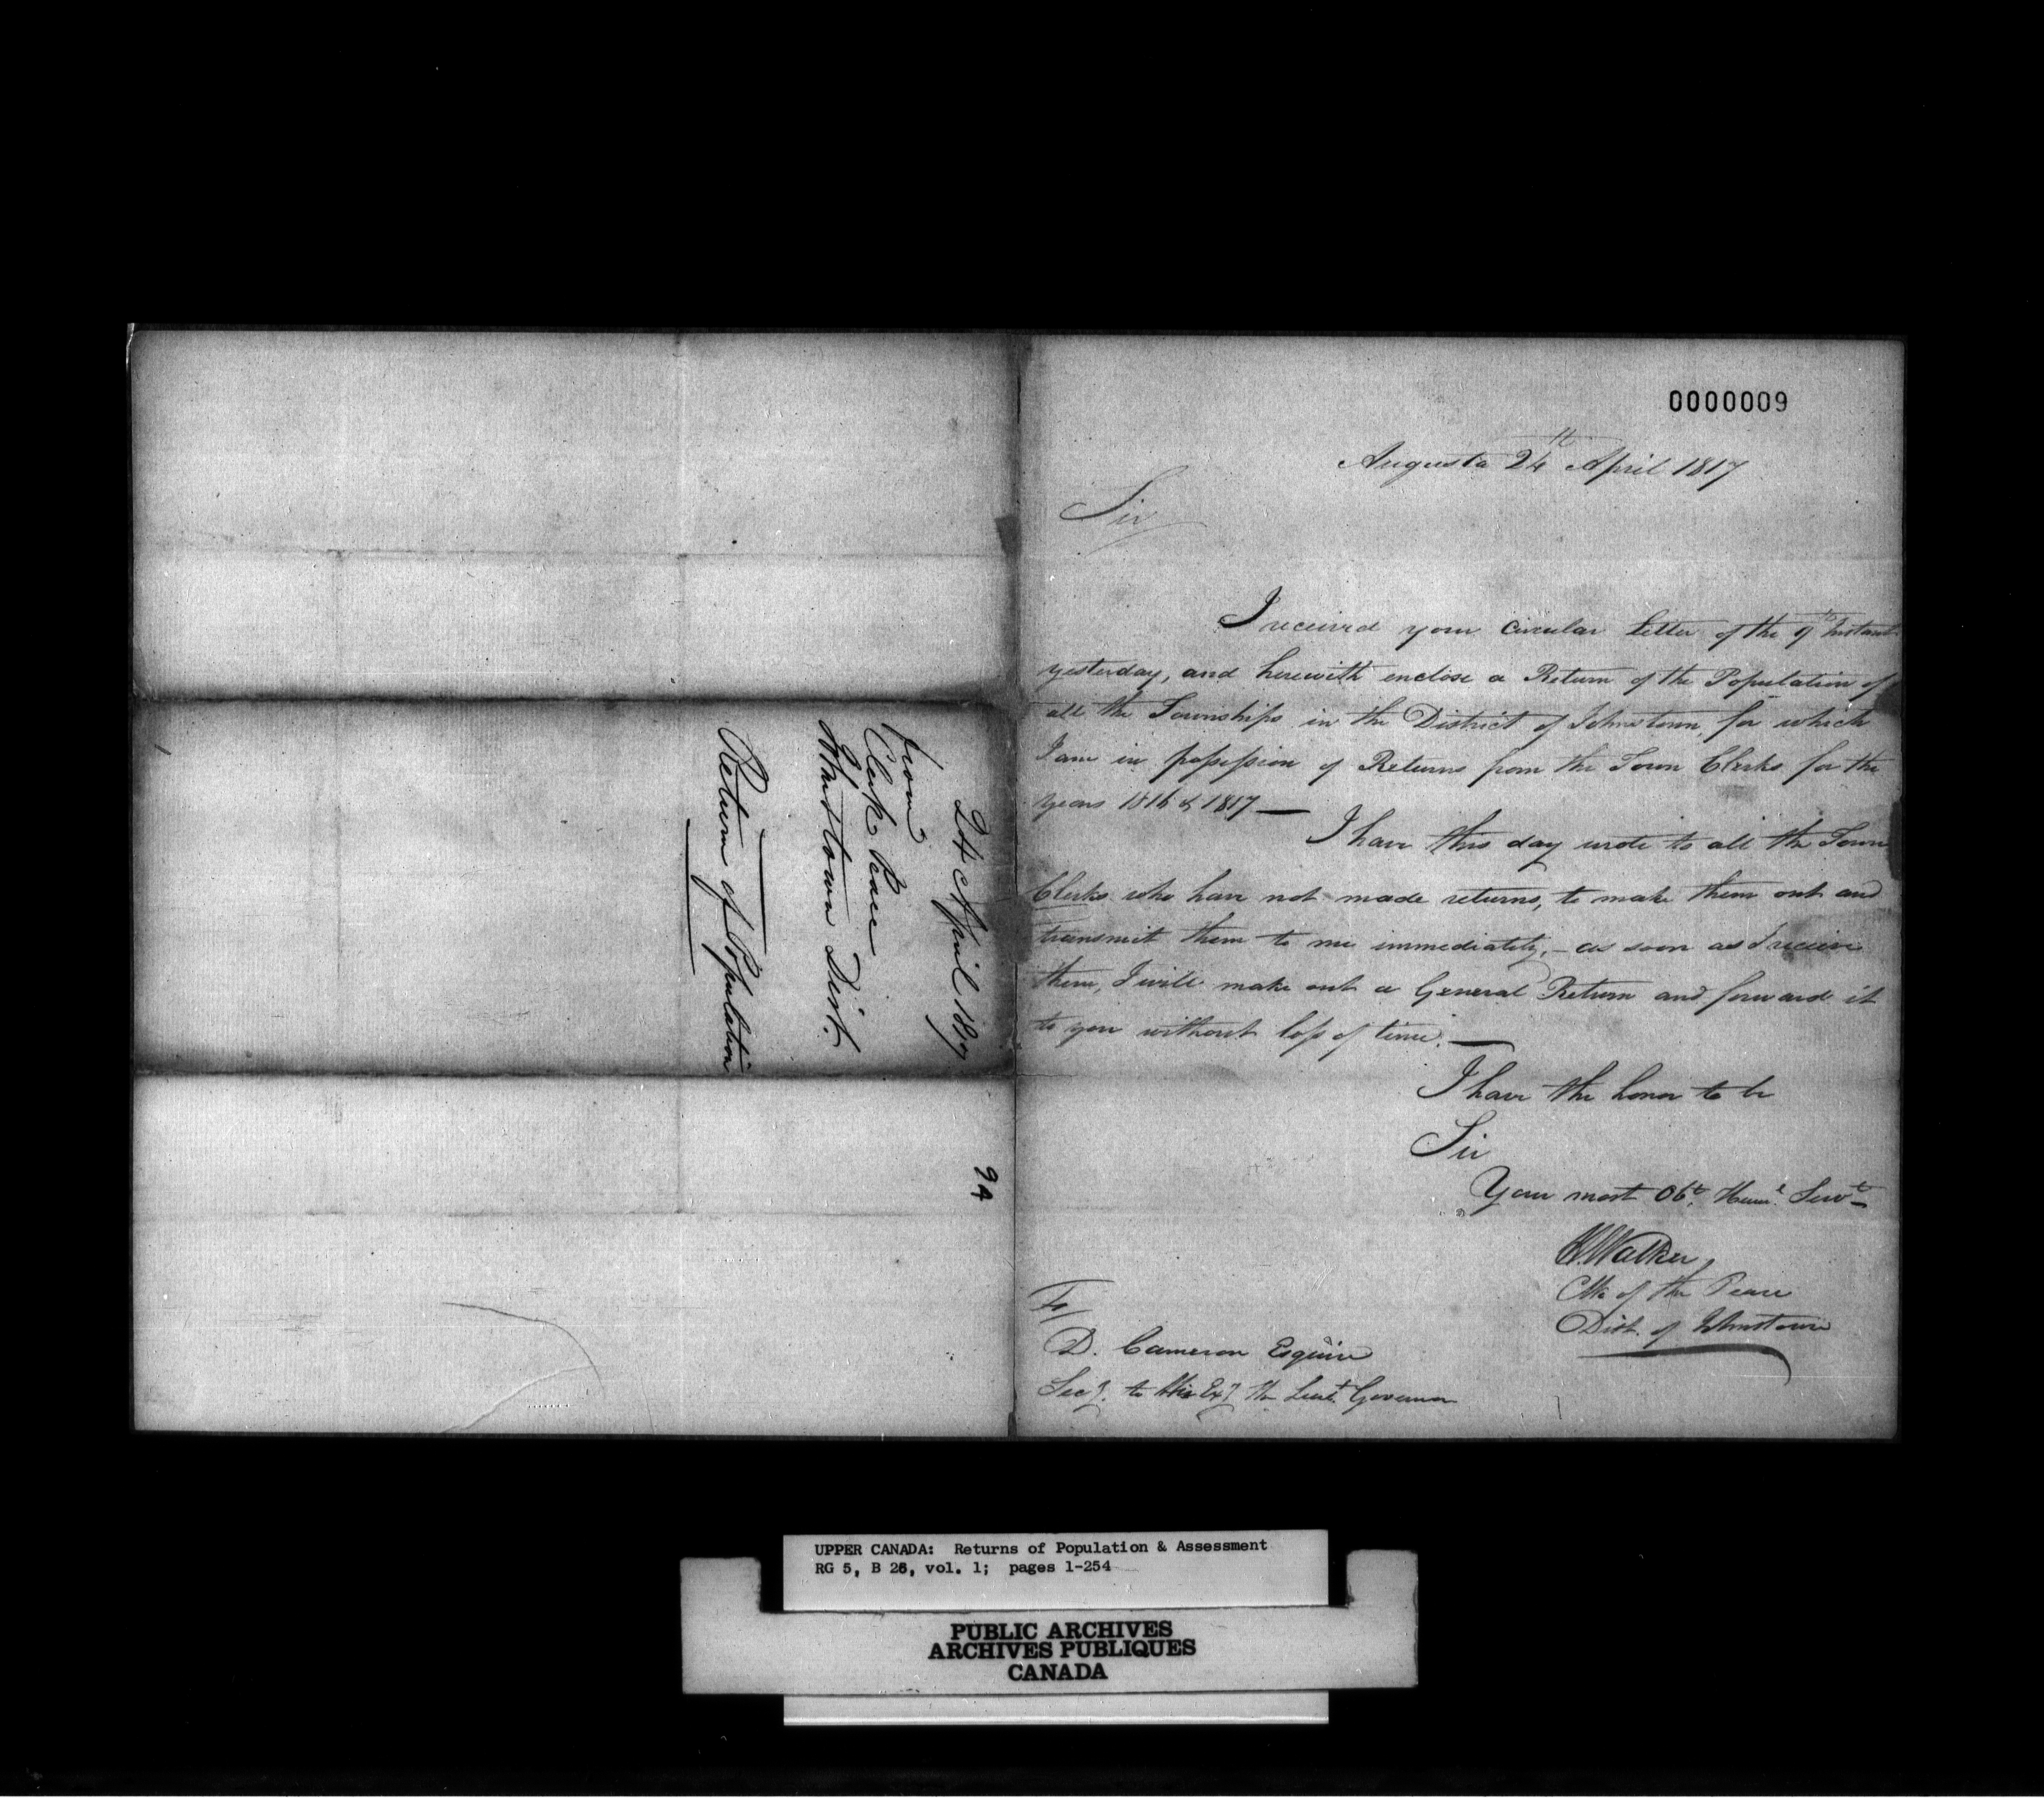 0000009
Augusta 24th April 1817
Sir
I received your Circular Letter of the 9th Instant
yesterday, and herewith enclose a Return of the Population of
all the Townships in the District of Johnstown, for which
I am in possession of Returns from the Town Clerks for the
years 1816 & 1817 —
I have this day wrote to all the Town
Clerks who have not made returns, to make them out and
transmit them to me immediately, – as soon as I receive
them, I will make out a General Return and forward it
to you without loss of time. —
I have the honor to be
Sir
Your most Obt. Huml. Servt
Walker,
Clk of the Peace
Dist. of Johnstown
To/
D. Cameron Esquire
Secy. to His Exy. the Lieut. Governor
24 April 1817
from
Clerk Peace
Johnstown Dist.
Return of Population
94
UPPER CANADA: Returns of Population & Assessment
RG 5, B 26, vol. 1; pages 1-254
PUBLIC ARCHIVES
ARCHIVES PUBLIQUES
CANADA